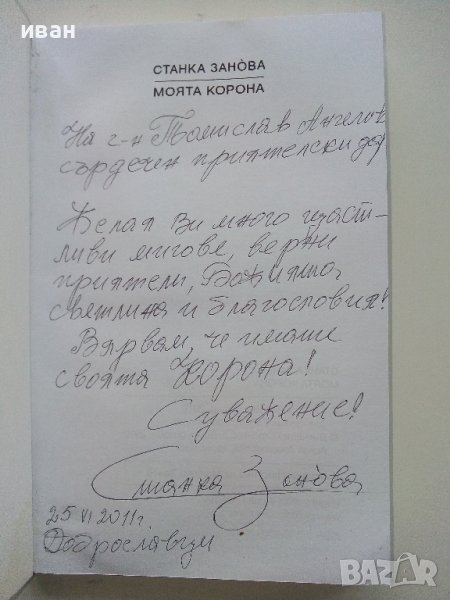 иван
СТАНКА ЗАНО̀ВА
МОЯТА КОРОНА
На г-н Томислав Ангелов
сърдечен приятелски дар
Желая Ви много щаст-
ливи мигове, верни
приятели, Божията
светлина и благословия!
Вярвам, че имате
своята Корона!
С уважение!
Станка Зано̀ва
25 VI 2011 г.
Доброславци
BAZAR